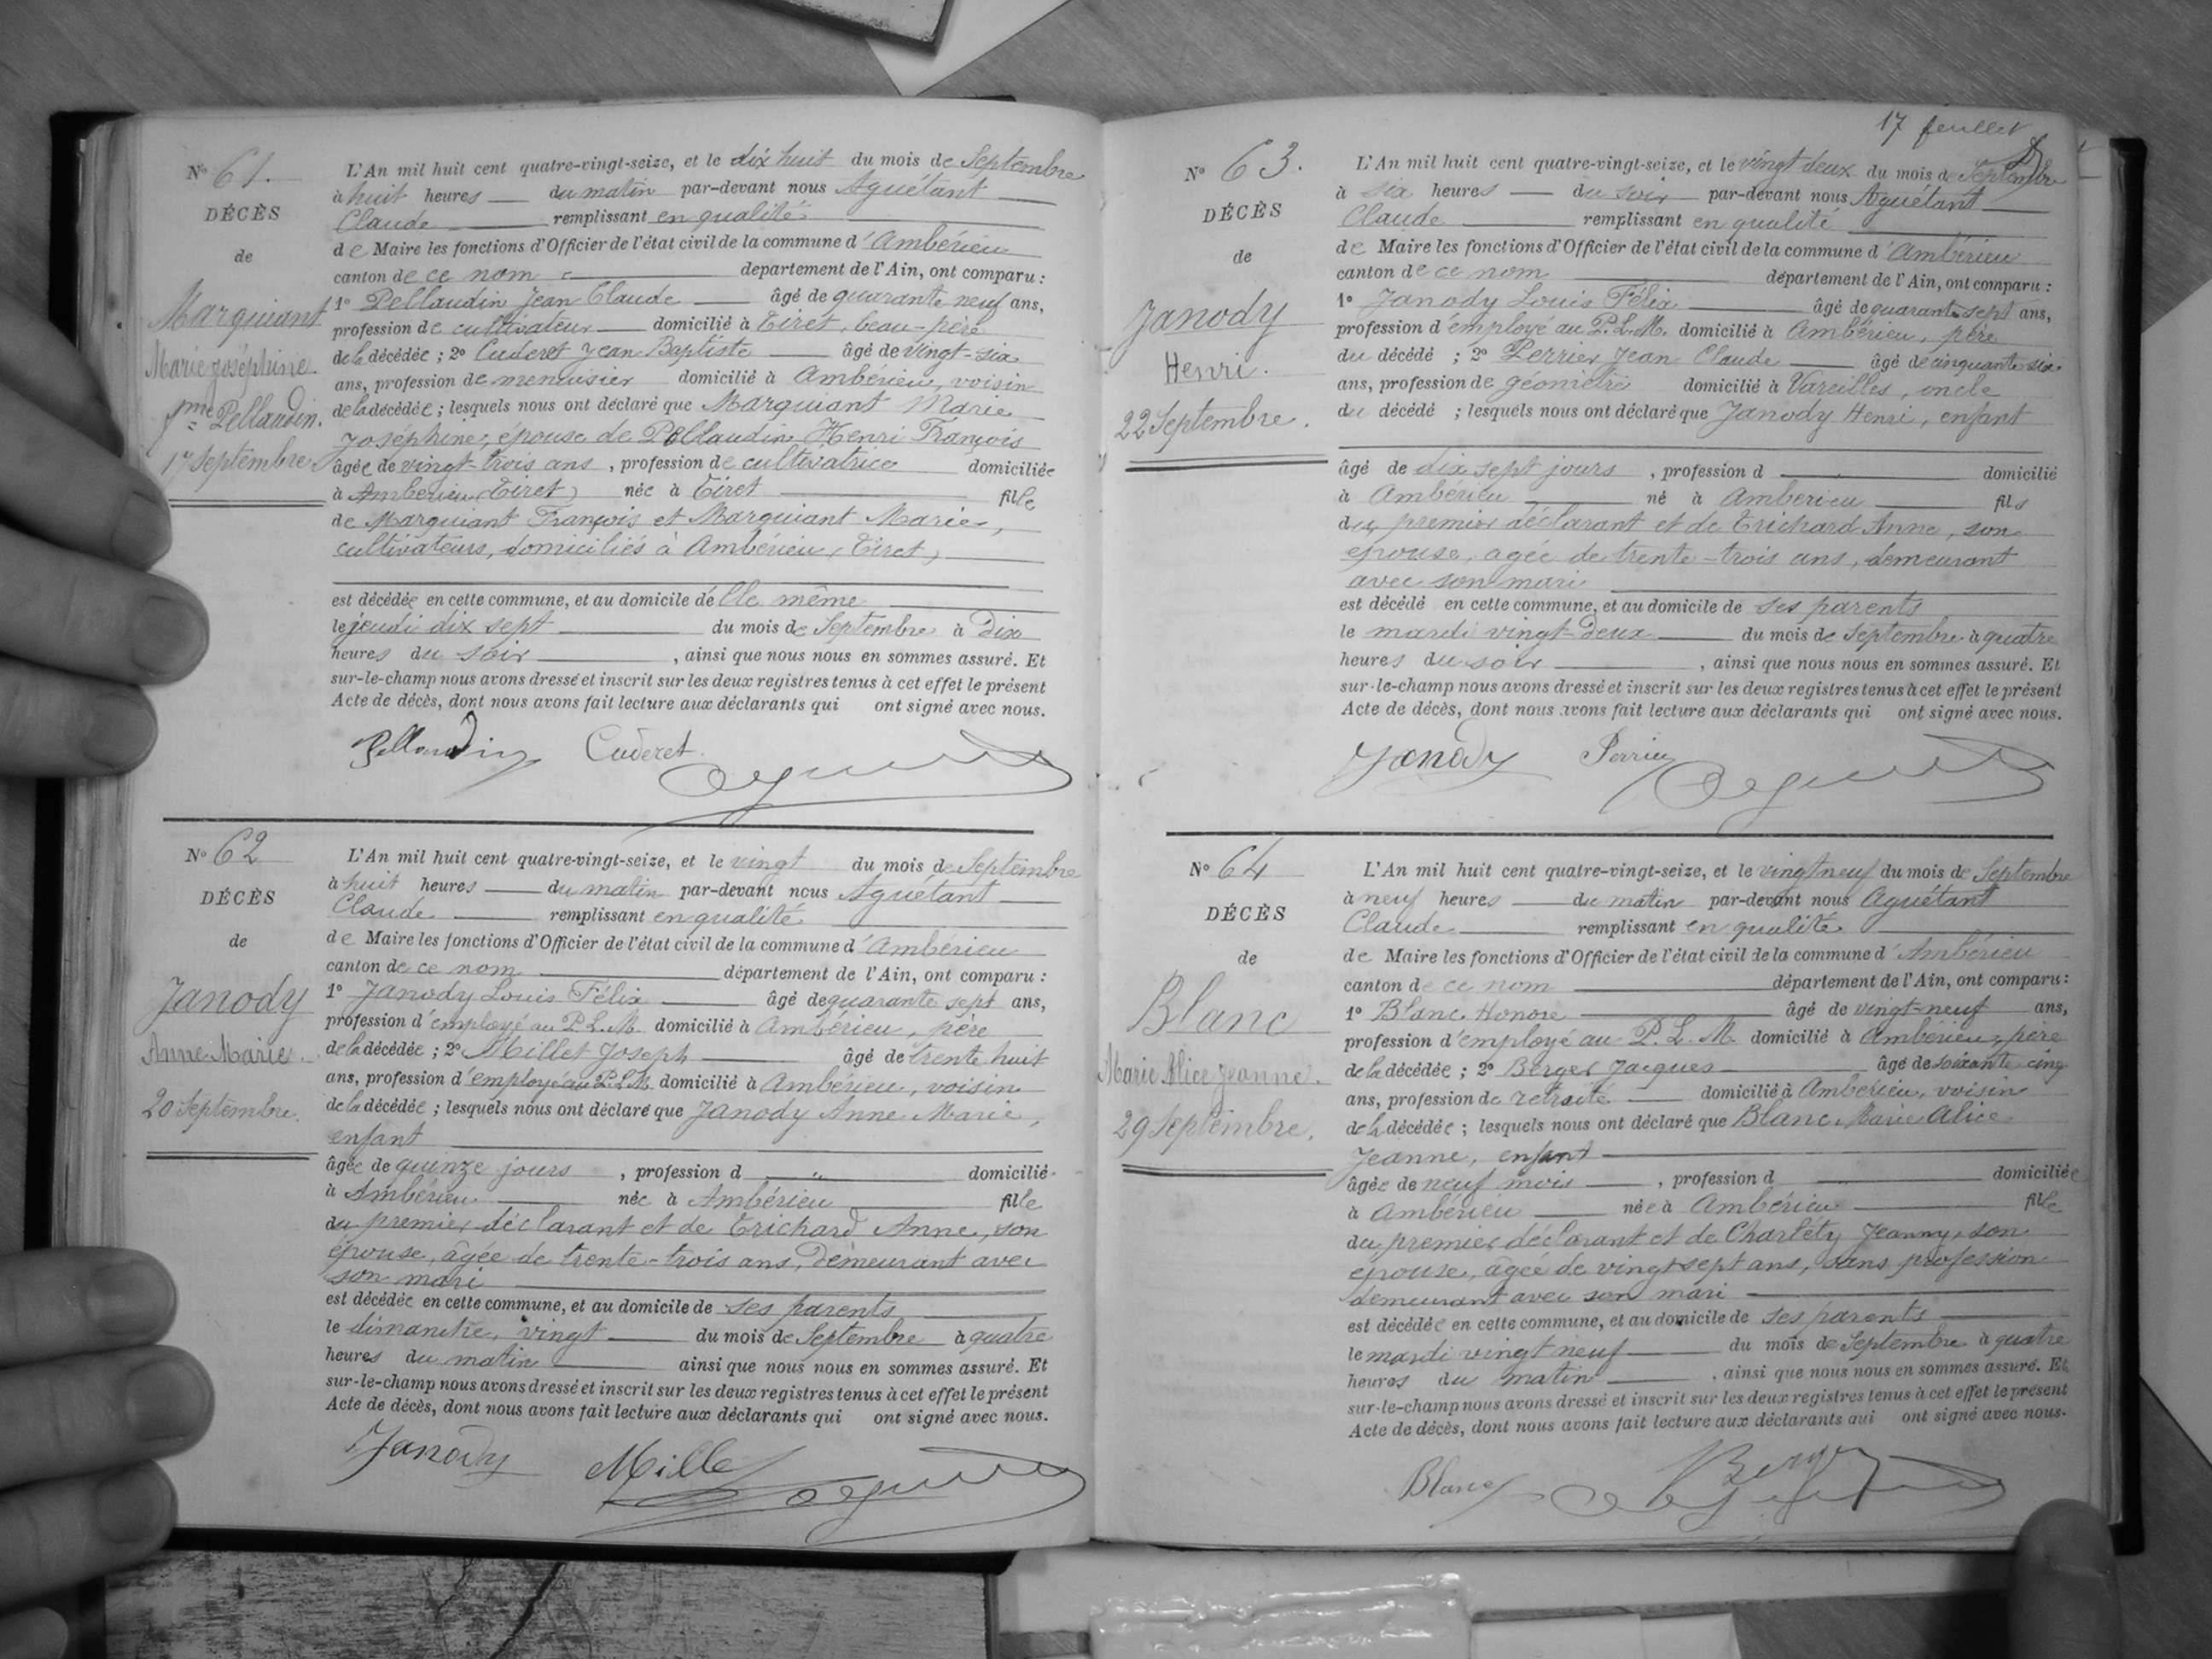 N° 61.
DÉCÈS
de
Marguiant
Marie Joséphine.
fme Pellaudin.
17 Septembre
L'An mil huit cent quatre-vingt-seize, et le dix huit du mois de Septembre
à huit heures du matin par-devant nous Aguétant
Claude remplissant en qualité
de Maire les fonctions d'Officier de l'état civil de la commune d'Ambérieu
canton de ce nom département de l'Ain, ont comparu :
1° Pellaudin Jean Claude âgé de quarante neuf ans,
profession de cultivateur domicilié à Tiret, beau-père
de la décédée ; 2° Cuderet Jean Baptiste âgé de vingt-six
ans, profession de menuisier domicilié à Ambérieu, voisin
de la décédée ; lesquels nous ont déclaré que Marguiant Marie
Joséphine, épouse de Pellaudin Henri François
âgée de vingt-trois ans, profession de cultivatrice domiciliée
à Ambérieu (Tiret) née à Tiret fille
de Marguiant François et Marguiant Marie,
cultivateurs, domiciliés à Ambérieu (Tiret)
est décédée en cette commune, et au domicile d'elle même
le jeudi dix sept du mois de Septembre à dix
heures du soir, ainsi que nous nous en sommes assuré. Et
sur-le-champ nous avons dressé et inscrit sur les deux registres tenus à cet effet le présent
Acte de décès, dont nous avons fait lecture aux déclarants qui ont signé avec nous.
Pellaudin Cuderet
N° 62
DÉCÈS
de
Janody
Anne Marie.
20 Septembre.
L'An mil huit cent quatre-vingt-seize, et le vingt du mois de Septembre
à huit heures du matin par-devant nous Aguétant
Claude remplissant en qualité
de Maire les fonctions d'Officier de l'état civil de la commune d'Ambérieu
canton de ce nom département de l'Ain, ont comparu :
1° Janody Louis Félix âgé de quarante sept ans,
profession d'employé au P. L. M. domicilié à Ambérieu, père
de la décédée ; 2° Millet Joseph âgé de trente huit
ans, profession d'employé au P. L. M. domicilié à Ambérieu, voisin
de la décédée ; lesquels nous ont déclaré que Janody Anne Marie,
enfant
âgée de quinze jours, profession d " domicilié
à Ambérieu née à Ambérieu fille
du premier déclarant et de Trichard Anne, son
épouse, âgée de trente-trois ans, demeurant avec
son mari
est décédée en cette commune, et au domicile de ses parents
le dimanche, vingt du mois de Septembre à quatre
heures du matin ainsi que nous nous en sommes assuré. Et
sur-le-champ nous avons dressé et inscrit sur les deux registres tenus à cet effet le présent
Acte de décès, dont nous avons fait lecture aux déclarants qui ont signé avec nous.
Janody Millet
17 feuillet
N° 63.
DÉCÈS
de
Janody
Henri.
22 Septembre.
L'An mil huit cent quatre-vingt-seize, et le vingt deux du mois de Septembre
à six heures du soir par-devant nous Aguétant
Claude remplissant en qualité
de Maire les fonctions d'Officier de l'état civil de la commune d'Ambérieu
canton de ce nom département de l'Ain, ont comparu :
1° Janody Louis Félix âgé de quarante sept ans,
profession d'employé au P. L. M. domicilié à Ambérieu, père
du décédé ; 2° Perrier Jean Claude âgé de cinquante six
ans, profession de géomètre domicilié à Vareilles, oncle
du décédé ; lesquels nous ont déclaré que Janody Henri, enfant
âgé de dix sept jours, profession d domicilié
à Ambérieu né à Ambérieu fils
du premier déclarant et de Trichard Anne, son
épouse, agée de trente-trois ans, demeurant
avec son mari
est décédé en cette commune, et au domicile de ses parents
le mardi vingt-deux du mois de Septembre à quatre
heures du soir, ainsi que nous nous en sommes assuré. Et
sur-le-champ nous avons dressé et inscrit sur les deux registres tenus à cet effet le présent
Acte de décès, dont nous avons fait lecture aux déclarants qui ont signé avec nous.
Janody Perrier
N° 64
DÉCÈS
de
Blanc
Marie Alice Jeanne.
29 Septembre.
L'An mil huit cent quatre-vingt-seize, et le vingt neuf du mois de Septembre
à neuf heures du matin par-devant nous Aguétant
Claude remplissant en qualité
de Maire les fonctions d'Officier de l'état civil de la commune d'Ambérieu
canton de ce nom département de l'Ain, ont comparu :
1° Blanc Honoré âgé de vingt-neuf ans,
profession d'employé au P. L. M. domicilié à Ambérieu, père
de la décédée ; 2° Berger Jacques âgé de soixante cinq
ans, profession de retraité domicilié à Ambérieu, voisin
de la décédée ; lesquels nous ont déclaré que Blanc Marie Alice
Jeanne, enfant
âgée de neuf mois, profession d domiciliée
à Ambérieu née à Ambérieu fille
du premier déclarant et de Charléty Jeanny, son
épouse, âgée de vingt sept ans, sans profession
demeurant avec son mari
est décédée en cette commune, et au domicile de ses parents
le mardi vingt neuf du mois de Septembre à quatre
heures du matin, ainsi que nous nous en sommes assuré. Et
sur-le-champ nous avons dressé et inscrit sur les deux registres tenus à cet effet le présent
Acte de décès, dont nous avons fait lecture aux déclarants qui ont signé avec nous.
Blanc Berger